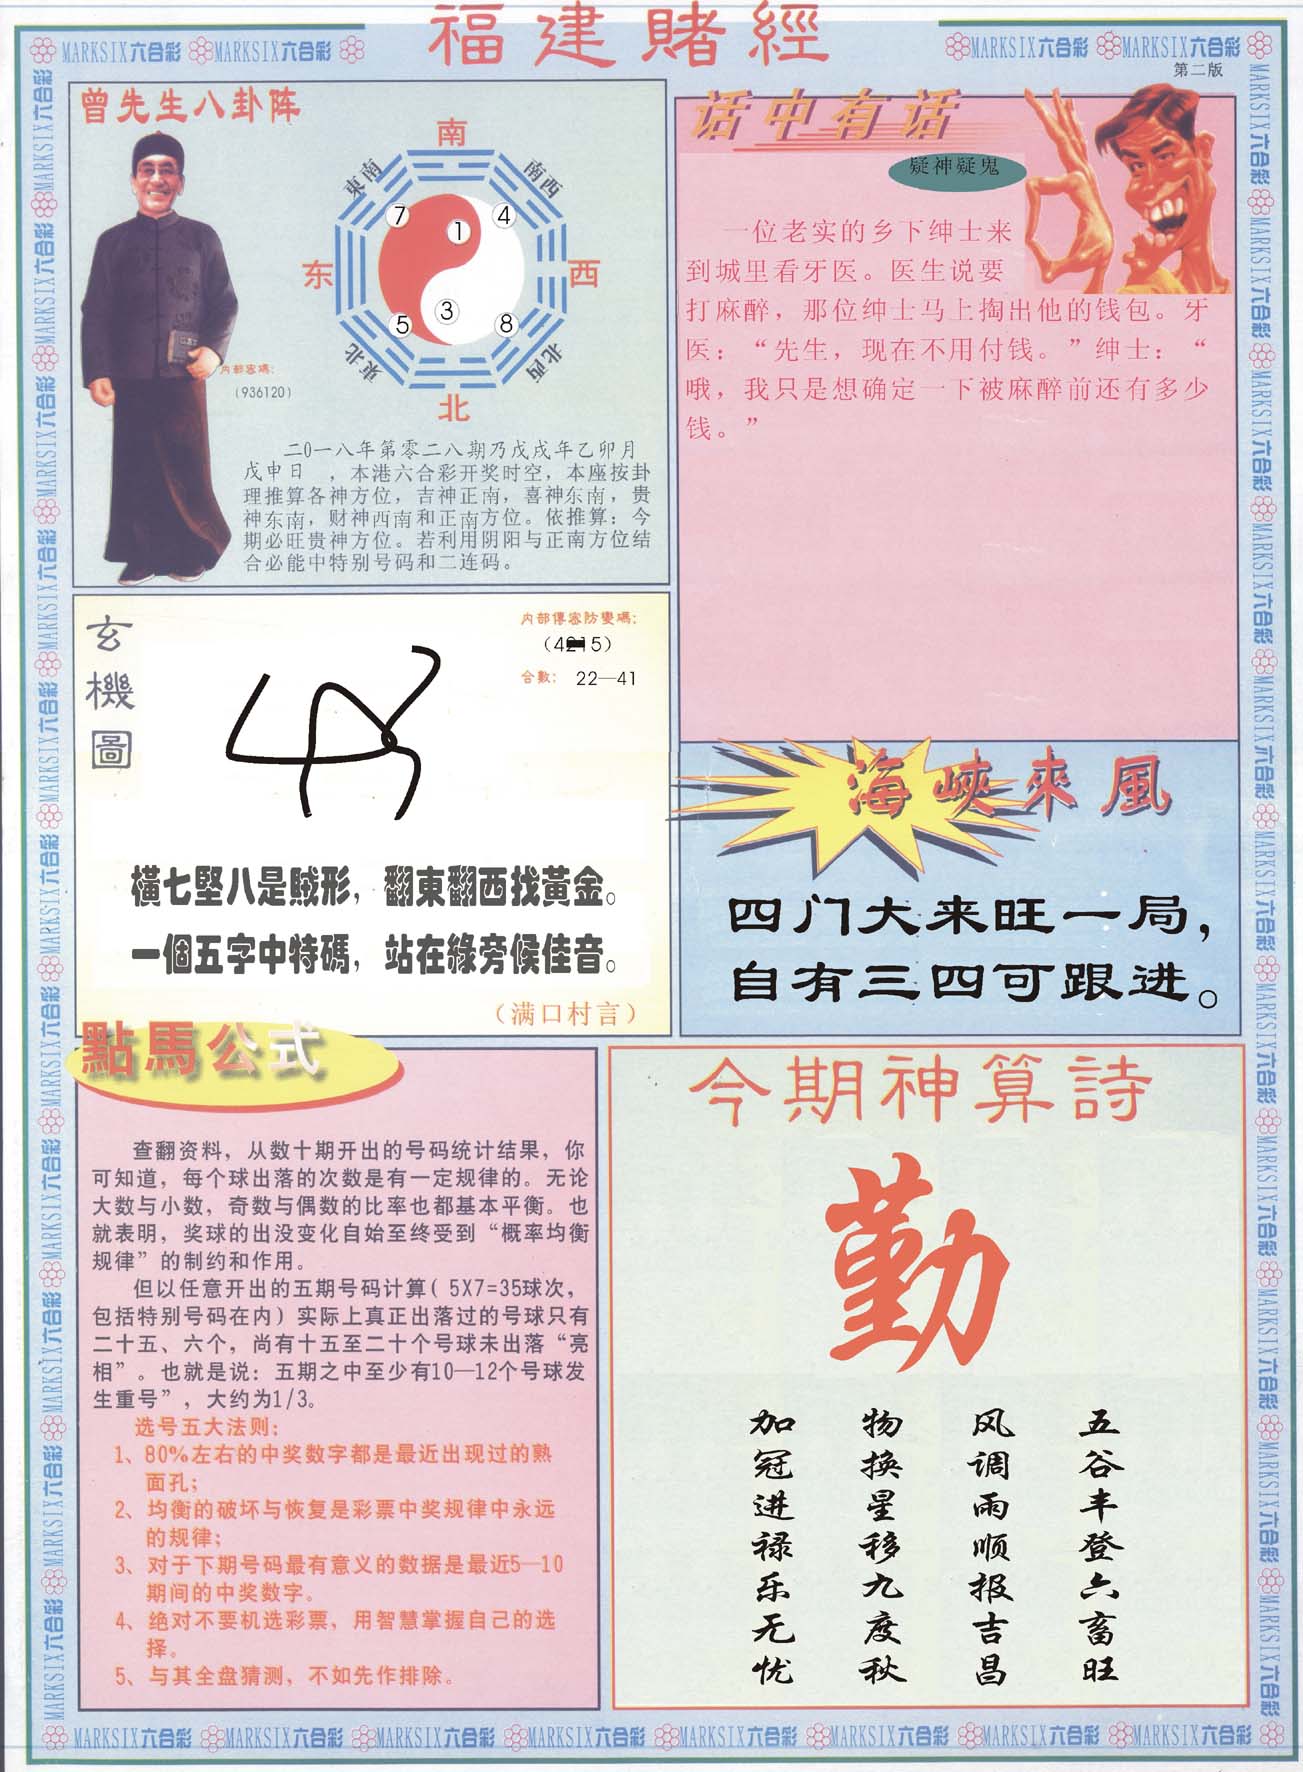 福建賭經
MARKSIX六合彩 MARKSIX六合彩
MARKSIX六合彩 MARKSIX六合彩
第二版
曾先生八卦阵
南
東南
南西
7
1
4
东
西
5
3
8
東北
北西
北
内部密碼:
(936120)
二0一八年第零二八期乃戊戌年乙卯月
戊申日 ，本港六合彩开奖时空，本座按卦
理推算各神方位，吉神正南，喜神东南，贵
神东南，财神西南和正南方位。依推算：今
期必旺贵神方位。若利用阴阳与正南方位结
合必能中特别号码和二连码。
话中有话
疑神疑鬼
一位老实的乡下绅士来
到城里看牙医。医生说要
打麻醉，那位绅士马上掏出他的钱包。牙
医：“先生，现在不用付钱。”绅士：“
哦，我只是想确定一下被麻醉前还有多少
钱。”
玄機圖
内部傳密防變碼:
(4215)
合數: 22—41
横七堅八是贼形，翻東翻西找黃金。
一個五字中特碼，站在緣旁候佳音。
（满口村言）
海峽來風
四门大来旺一局，
自有三四可跟进。
點馬公式
查翻资料，从数十期开出的号码统计结果，你
可知道，每个球出落的次数是有一定规律的。无论
大数与小数，奇数与偶数的比率也都基本平衡。也
就表明，奖球的出没变化自始至终受到“概率均衡
规律”的制约和作用。
但以任意开出的五期号码计算( 5X7=35球次，
包括特别号码在内）实际上真正出落过的号球只有
二十五、六个，尚有十五至二十个号球未出落“亮
相”。也就是说：五期之中至少有10—12个号球发
生重号”，大约为1/3。
选号五大法则：
1、80%左右的中奖数字都是最近出现过的熟
面孔；
2、均衡的破坏与恢复是彩票中奖规律中永远
的规律；
3、对于下期号码最有意义的数据是最近5—10
期间的中奖数字。
4、绝对不要机选彩票，用智慧掌握自己的选
择。
5、与其全盘猜测，不如先作排除。
今期神算詩
勤
五谷丰登六畜旺
风调雨顺报吉昌
物换星移九度秋
加冠进禄乐无忧
MARKSIX六合彩 MARKSIX六合彩 MARKSIX六合彩 MARKSIX六合彩 MARKSIX六合彩 MARKSIX六合彩 MARKSIX六合彩 MARKSIX六合彩